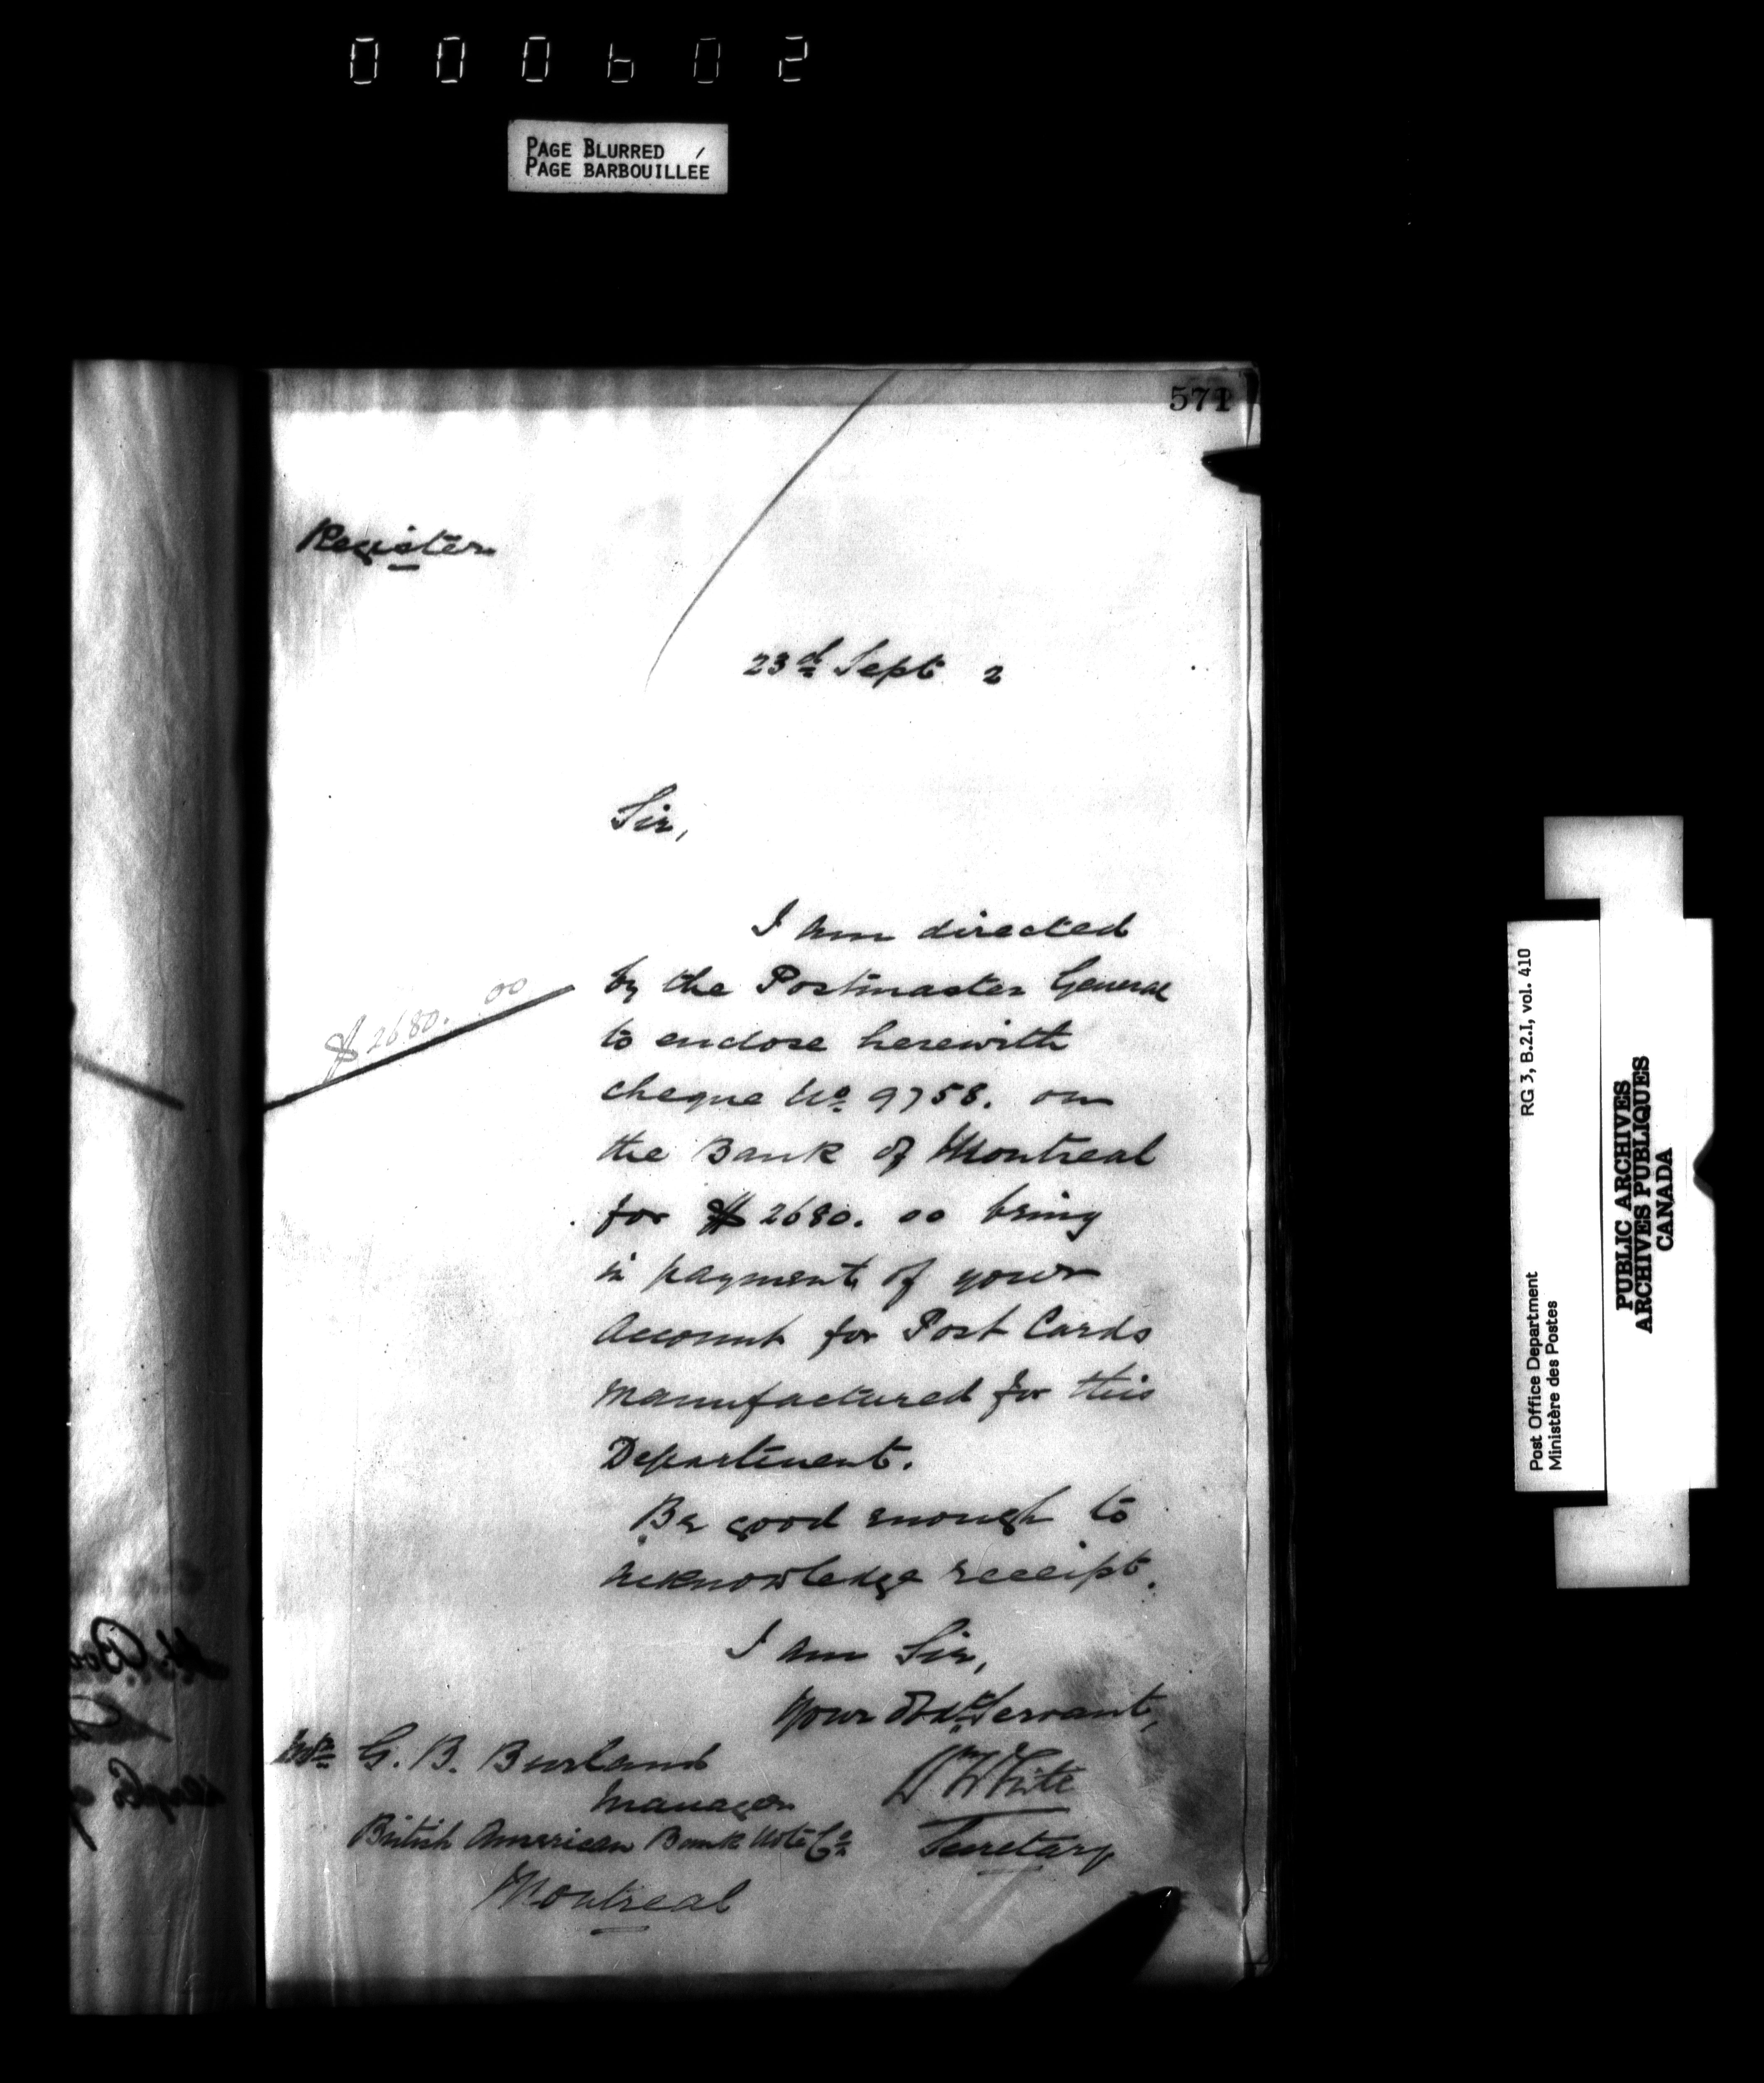 000602
PAGE BLURRED /
PAGE BARBOUILLÉE
571
Register
23d Sept 2
Sir,
I am directed
by the Postmaster General
$2680.00
to enclose herewith
cheque No. 9758. on
the Bank of Montreal
for $2680.00 being
in payment of your
Account for Post Cards
manufactured for this
Department.
Be good enough to
acknowledge receipt.
I am Sir,
Your Obdt Servant,
G. B. Burland
Manager
British American Bank Note Co
Montreal
Wm White
Secretary
RG 3, B.2.I, vol. 410
Post Office Department
Ministère des Postes
PUBLIC ARCHIVES
ARCHIVES PUBLIQUES
CANADA